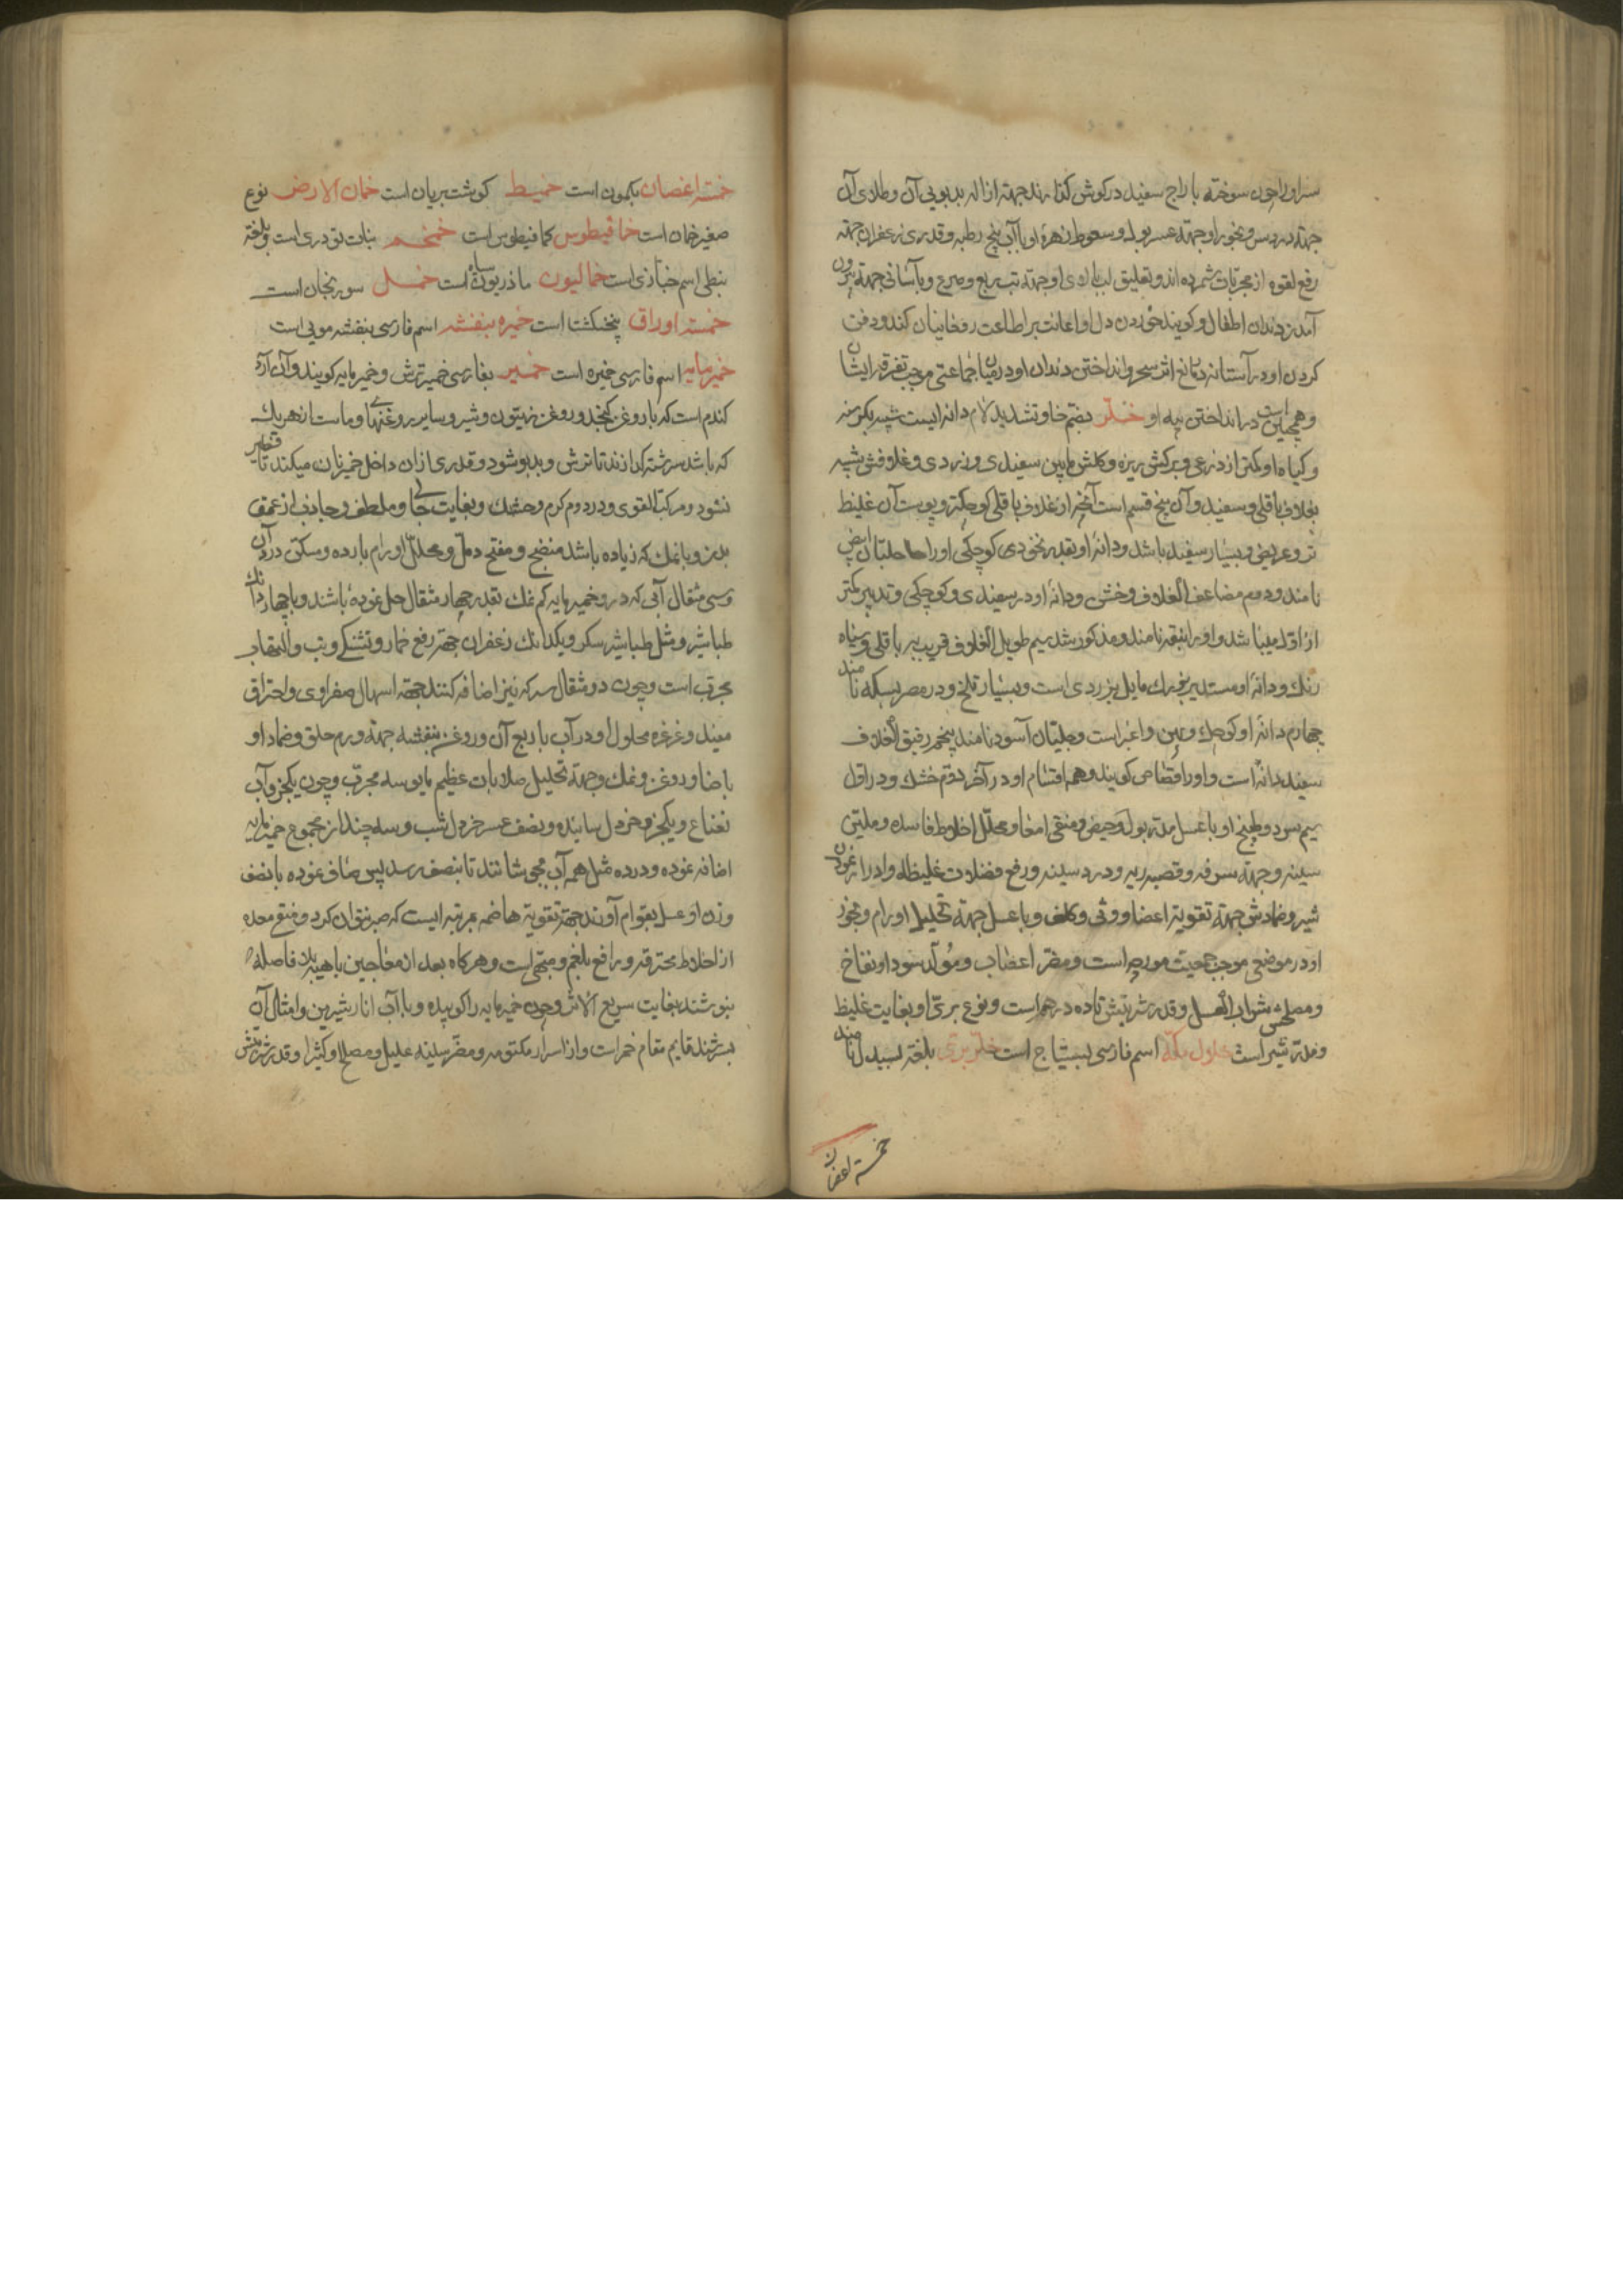 سر او را چون سوخته با زاج سفید در گوش کنند جهة ازاله بدبویی آن و طلای آن
جهة درد سر و بخور او جهة عسر بول و سعوط زهرهٔ او با آب بنج رطبه و قدری زعفران جهة
رفع لقوه از مجربات شمرده اند و تعلیق لب بالای او جهة تب ربع و صرع و بآسانی جهة بیرون
آمدن دندان اطفال و گویند خوردن دل او اعانت بر اطاعت کند و دفن
کردن او در آستانه مانع اثر سحر و انداختن دندان او در میان جماعتی موجب تفرقه ایشان
و همچنین است در انداختن پیه او خلر بضم خا و تشدید لام دانه ایست شبیه بکرسنه
و گیاه او کمتر از ذرعی و برگش ریزه و گلش مابین سفیدی و زردی و غلافش شبیه
بغلاف باقلی و سفید و آن پنج قسم است آنچه از غلاف باقلی کوچکتر و پوست آن غلیظ
تر و عریض و بسیار سفید باشد و دانهٔ او بقدر نخودی کوچکی او را جلبان ابیض
نامند و دوم مضاعف الغلاف و خشن و دانهٔ او در سفیدی و کوچکی و تدبیر کمتر
از اول میباشد و او را بیقه نامند و مذکور شد سیم طویل الغلاف قریب به باقلی و سیاه
رنگ و دانهٔ او مستدیر تیره رنگ مایل بزردی است و بسیار تلخ و در مصر بسکه نامند
چهارم دانهٔ او کوچک و اغبر است و جلبان اسود نامند پنجم رقیق الغلاف
سفید دانه است و او را قصاص گویند و همه اقسام او در آخر دوم خشک و در اول
سیم سرد و طبیخ او با عسل مدر بول و حیض و منقی امعا و محلل اخلاط فاسده و ملین
سینه و جهة سرفه و قصبه ریه و درد سینه و رفع فضلات غلیظه و ادرار نمودن
شیر و ضمادش جهة تقویة اعضا و وثی و کلف و با عسل جهة تحلیل اورام و بخور
او در موضعی موجب جمعیت مورچه است و مضر اعصاب و مولد سودا و نفاخ
و مصلحش شراب العسل و قدر شربتش تا ده درهم است و نوع بری او بغایت غلیظ
و مدر شیر است خلول مکه اسم فارسی بسفایج است خلر بری بلغة لسید نامند
خمسة اغصان
خمسة اغصان بکمون است خمیط گوشت بریان است خمان الارض نوع
صغیر خمان است خمافیطوس کمافیطوس است خمخم بنات تودری است و بلغة
نبطی اسم خبازی است خمالیون ماذریون سیاه است خمل سورنجان است
خمسة اوراق پنجنکشت است خمیره بنفشه اسم فارسی بنفشه مربی است
خمیر مایه اسم فارسی خمیره است خمیر بفارسی خمیر ترش و خمیر مایه گویند و آن آرد
گندم است که با روغن کنجد و روغن زیتون و شیر و سایر روغنها و ماست از هر یک
که باشد سرشته گذارند تا ترش و بدبو شود و قدری از آن داخل خمیر نان میکنند تا فطیر
نشود و مرکب القوی و در دوم گرم و خشک و بغایت جالی و ملطف و جاذب از عمق
بدن و با نمک که زیاده باشد منضج و مفتح دمل و محلل اورام بارده و مسکن درد آن
و سی مثقال آبی که در و خمیر مایه کم نمک بقدر چهار مثقال حل نموده باشند و با چهار دانک
طباشیر و مثل طباشیر سکر و یکدانک زعفران جهة رفع خمار و تشنگی و تب و التهاب
مجرب است و چون دو مثقال سرکه نیز اضافه کنند جهة اسهال صفراوی و احتراق
مفید و غرغره محلول او در آب با ربع آن روغن بنفشه جهة ورم حلق و ضماد او
با حنا و روغن و نمک جهة تحلیل صلابات عظیم مایوسه مجرب و چون یکجزو آب
نعناع و یکجزو خردل سائیده و نصف عسر خردل شب و سه چند از مجموع خمیر مایه
اضافه نموده و در ده مثل همه آب بجوشانند تا بنصف رسد پس صاف نموده با نصف
وزن او عسل بقوام آورند جهة تقویة هاضمه بمرتبه ایست که صبر نتوان کرد و منقی معده
از اخلاط محترقه و رافع بلغم و مبهی است و هر گاه بعد از معاجین باهیه بلا فاصله
بنوشند بغایت سریع الاثر و چون خمیر مایه را کوبیده و با آب انار شیرین و امثال آن
بسرشند قایم مقام خمر است و از اسرار مکتومه و مضر سینه علیل و مصلح او کثیرا و قدر شربتش